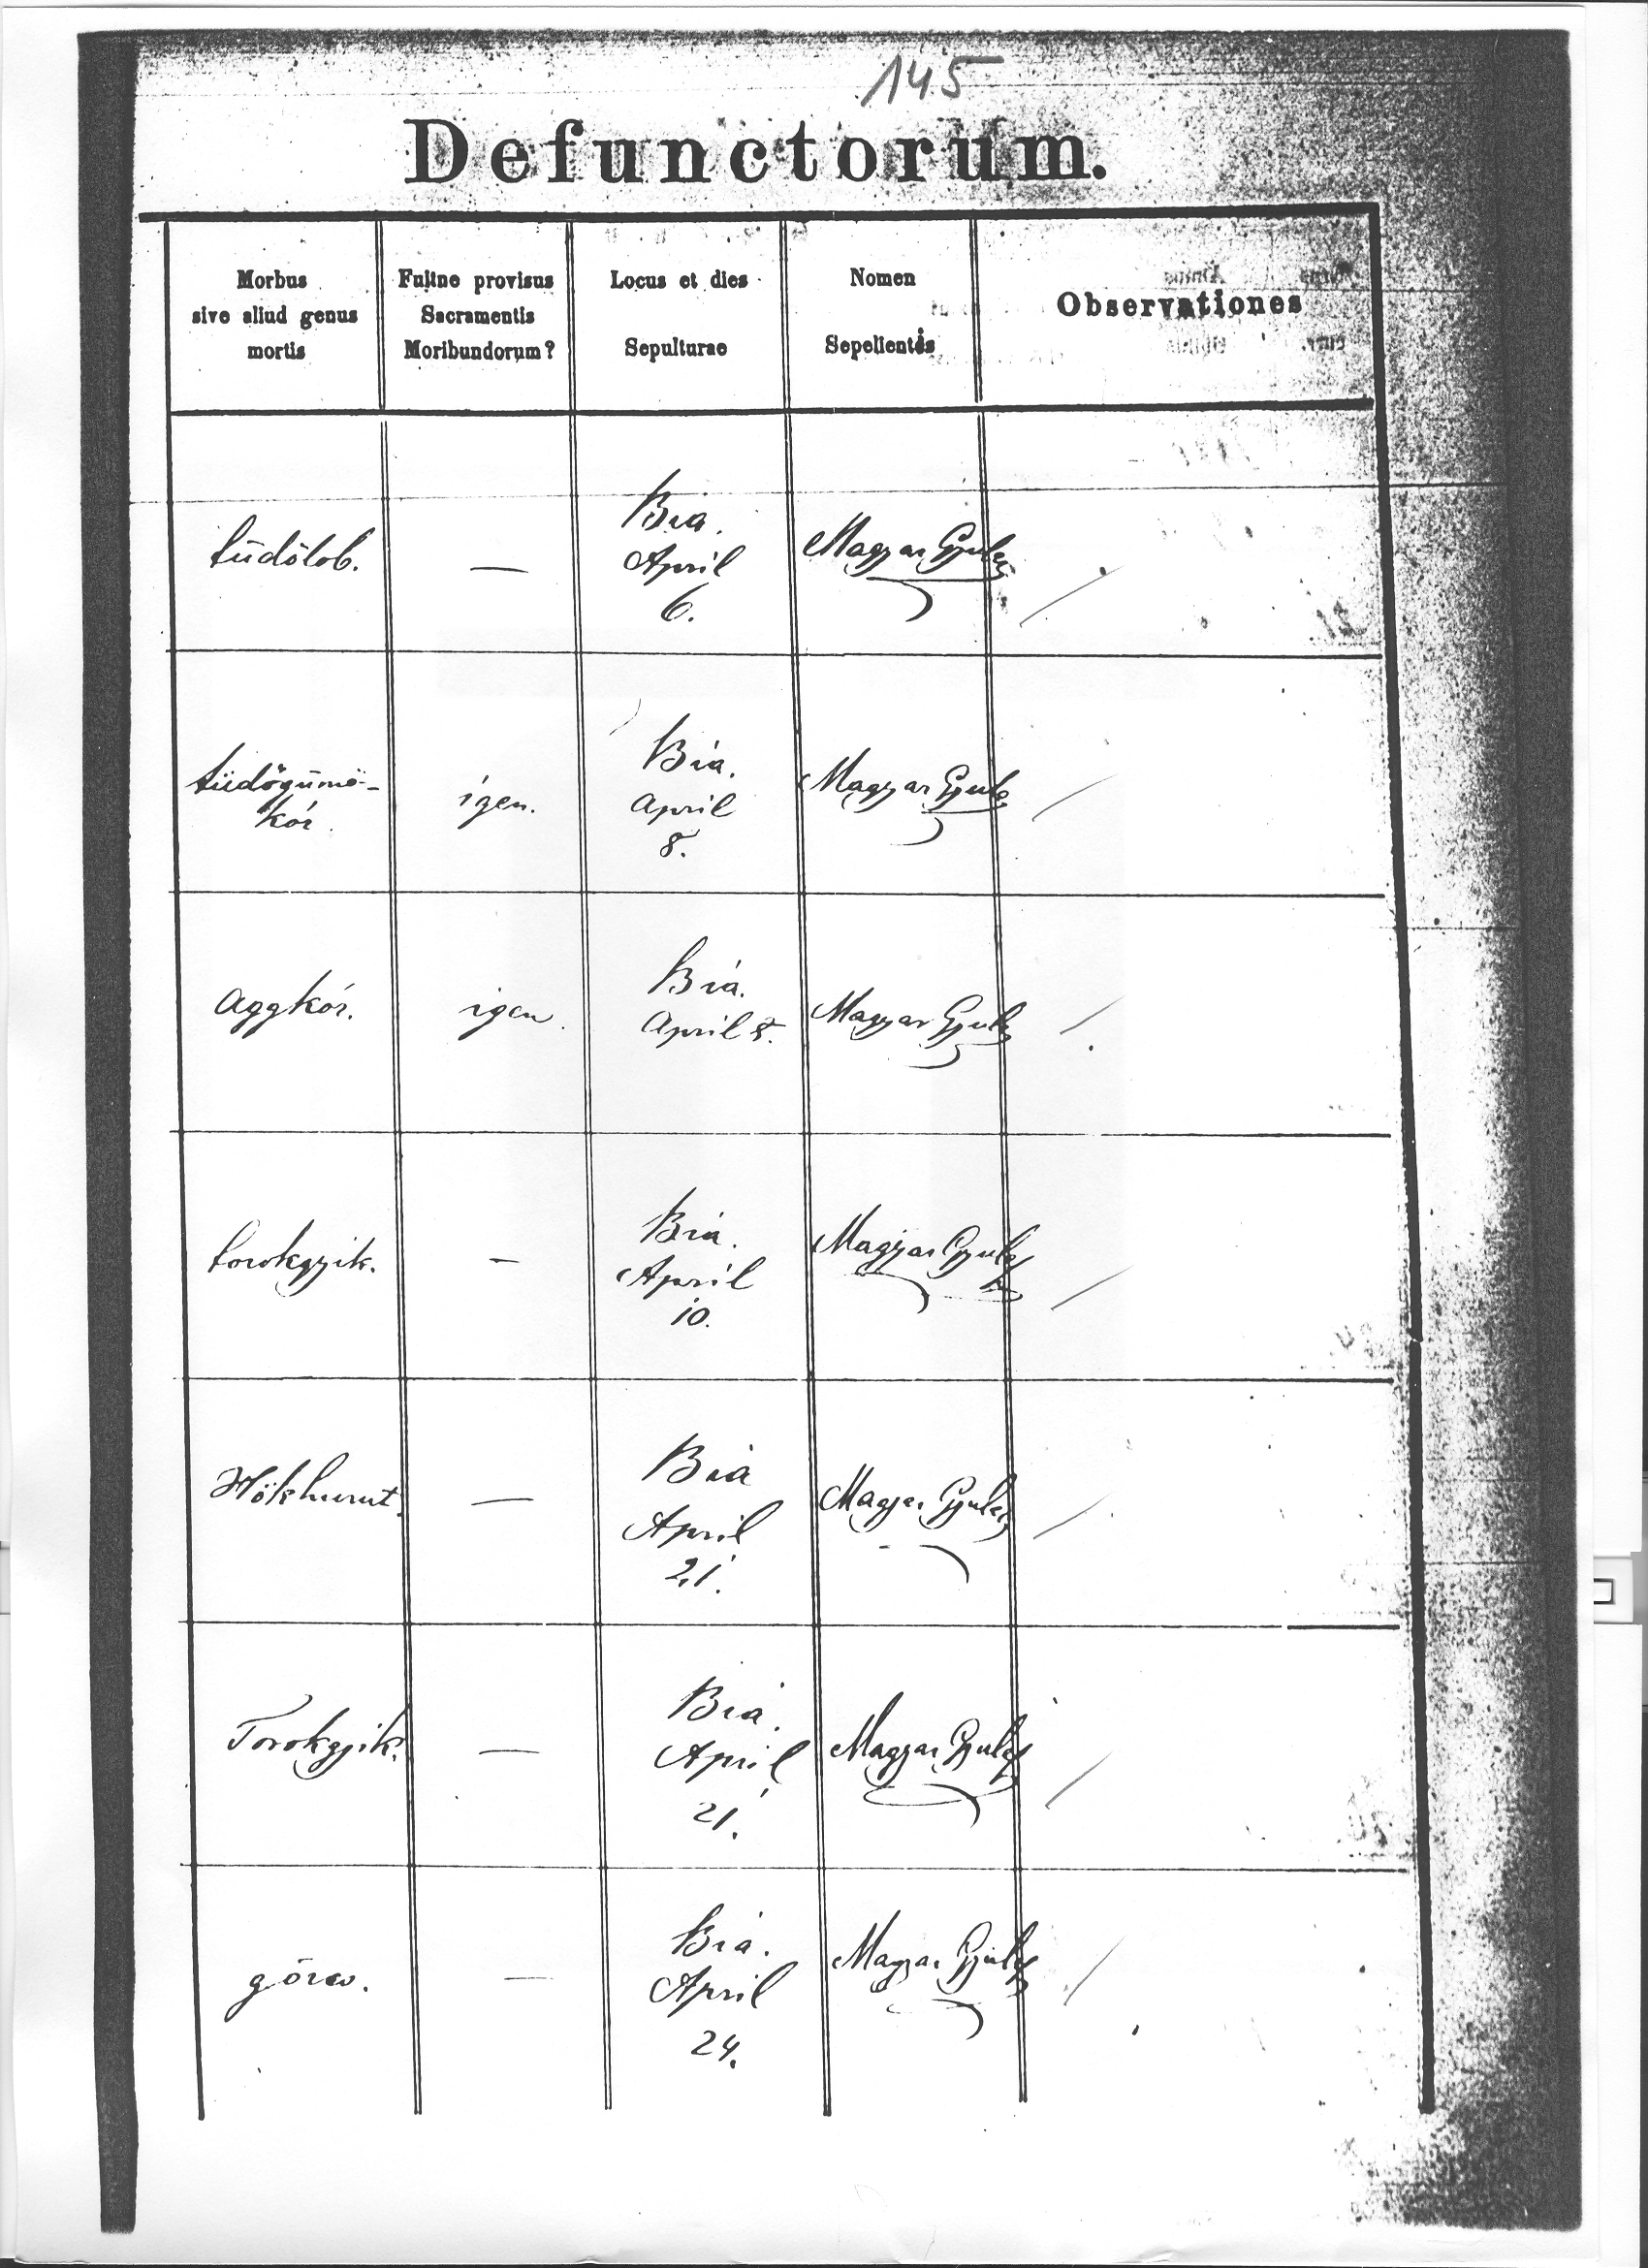 145
Defunctorum.
Morbus
sive aliud genus
mortis
Fuitne provisus
Sacramentis
Moribundorum?
Locus et dies
Sepulturae
Nomen
Sepelientis
Observationes
tüdőlob.
—
Bia.
April
6.
Magyar Gyula
tüdőgümő-
kór.
igen.
Bia.
April
8.
Magyar Gyula
Aggkór.
igen.
Bia.
April 8.
Magyar Gyula
torokgyik.
—
Bia.
April
10.
Magyar Gyula
Hökhurut.
—
Bia
April
21.
Magyar Gyula
Torokgyik.
—
Bia.
April
21.
Magyar Gyula
görcs.
—
Bia.
April
24.
Magyar Gyula